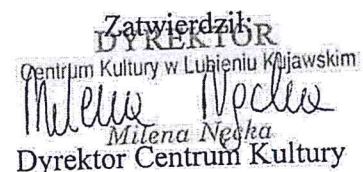 Zatwierdził:
DYREKTOR
Centrum Kultury w Lubieniu Kujawskim
Milena Nęcka
Milena Nęcka
Dyrektor Centrum Kultury